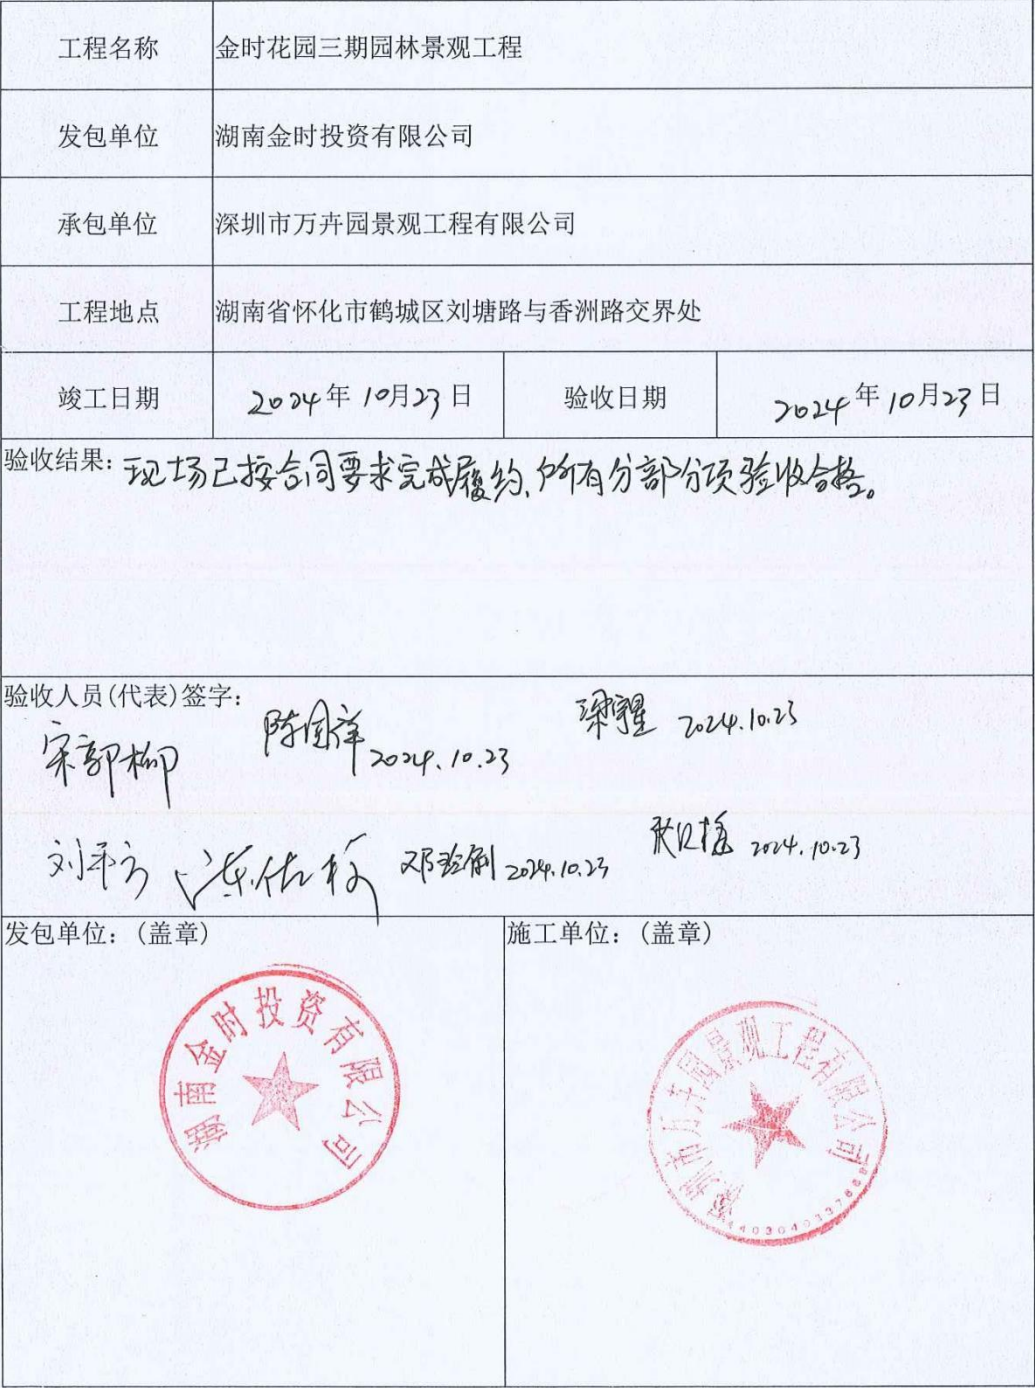 工程名称 金时花园三期园林景观工程
发包单位 湖南金时投资有限公司
承包单位 深圳市万卉园景观工程有限公司
工程地点 湖南省怀化市鹤城区刘塘路与香洲路交界处
竣工日期 2024年10月23日 验收日期 2024年10月23日
验收结果：现场已按合同要求完成履约，所有分部分项验收合格。
验收人员(代表)签字：
宋郭柳 陈国洋 2024.10.23 2024.10.23
刘平方 2024.10.23 2024.10.23
发包单位：(盖章) 施工单位：(盖章)
湖南金时投资有限公司
深圳市万卉园景观工程有限公司